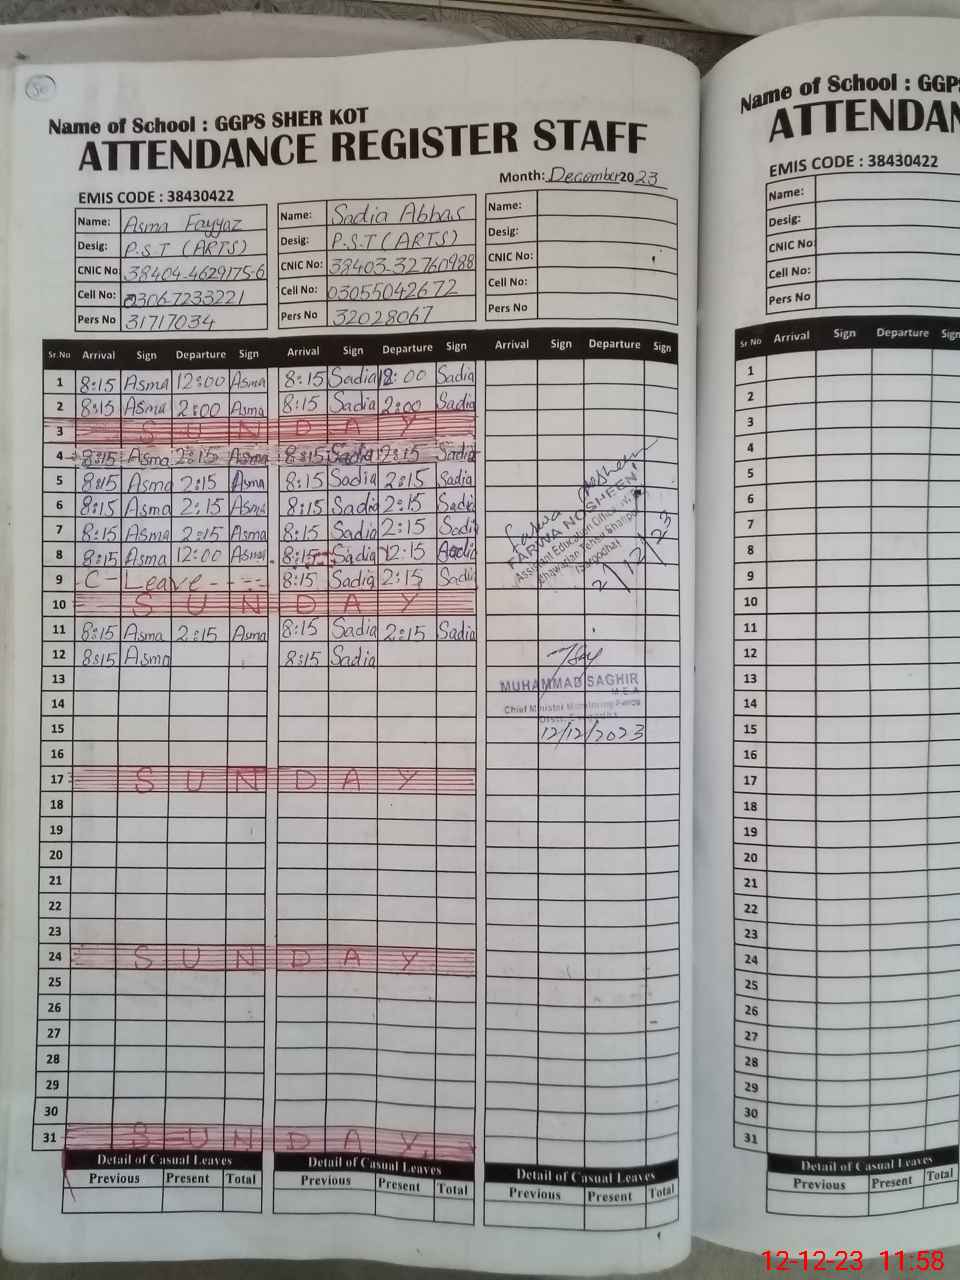 50
Name of School : GGPS SHER KOT
ATTENDANCE REGISTER STAFF
Month: December 2023
EMIS CODE : 38430422
Name: Asma Fayyaz
Desig: P.S.T (ARTS)
CNIC No: 38404-4629175-6
Cell No: 0306-7233221
Pers No 31717034
Name: Sadia Abbas
Desig: P.S.T (ARTS)
CNIC No: 38403-32760988
Cell No: 03055042672
Pers No 32028067
Name:
Desig:
CNIC No:
Cell No:
Pers No
Sr.No Arrival Sign Departure Sign Arrival Sign Departure Sign Arrival Sign Departure Sign
1 8:15 Asma 12:00 Asma 8:15 Sadia 12:00 Sadia
2 8:15 Asma 2:00 Asma 8:15 Sadia 2:00 Sadia
3 S U N D A Y
4 8:15 Asma 2:15 Asma 8:15 Sadia 2:15 Sadia
5 8:15 Asma 2:15 Asma 8:15 Sadia 2:15 Sadia
6 8:15 Asma 2:15 Asma 8:15 Sadia 2:15 Sadia
7 8:15 Asma 2:15 Asma 8:15 Sadia 2:15 Sadia
8 8:15 Asma 12:00 Asma 8:15 Sadia 12:15 Sadia
9 C-Leave 8:15 Sadia 2:15 Sadia
10 S U N D A Y
11 8:15 Asma 2:15 Asma 8:15 Sadia 2:15 Sadia
12 8:15 Asma 8:15 Sadia
13
14
15
16
17 S U N D A Y
18
19
20
21
22
23
24 S U N D A Y
25
26
27
28
29
30
31 S U N D A Y
FARWA NOSHEEN
Assistant Education Officer
MUHAMMAD SAGHIR
M.E.A
Chief Minister Monitoring Force
12/12/2023
Detail of Casual Leaves Detail of Casual Leaves Detail of Casual Leaves
Previous Present Total Previous Present Total Previous Present Total
Name of School : GGPS
ATTENDAN
EMIS CODE : 38430422
Name:
Desig:
CNIC No:
Cell No:
Pers No
Sr No Arrival Sign Departure Sign
1
2
3
4
5
6
7
8
9
10
11
12
13
14
15
16
17
18
19
20
21
22
23
24
25
26
27
28
29
30
31
Detail of Casual Leaves
Previous Present Total
12-12-23 11:58